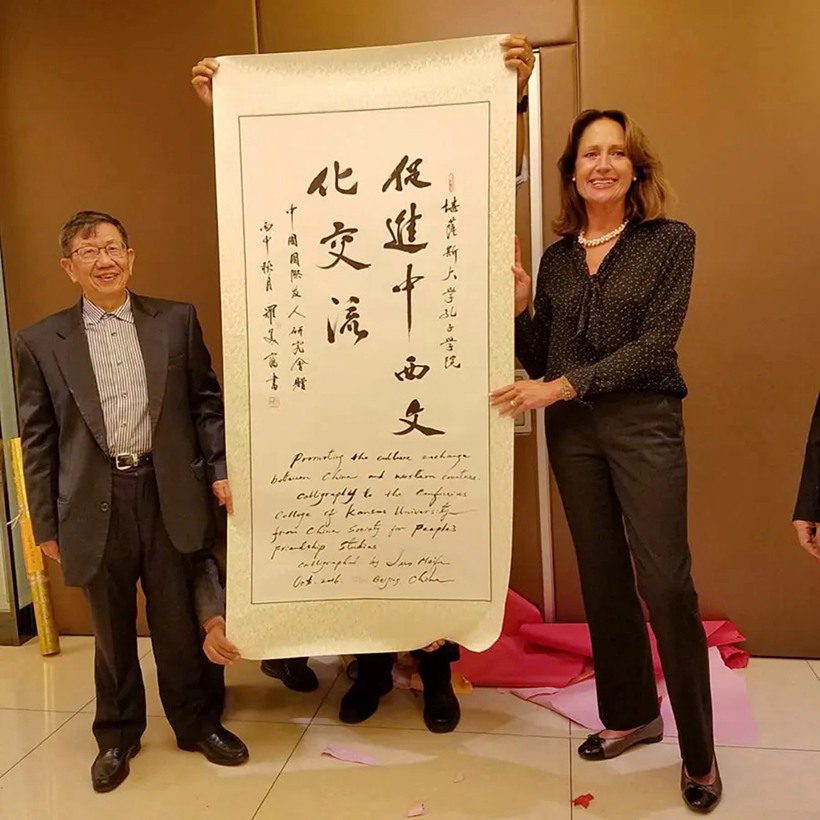 堪薩斯大学孔子学院
促進中西文
化交流
中國國際友人研究會贈
丙申秋月 羅美富書
Promoting the culture exchange
between China and western contries.
Calligraphy to the Confucius
College of Kansas University
from China Society for People's
Friendship Studies
Calligraphed by Luo Meifu
Oct. 2016. Beijing China